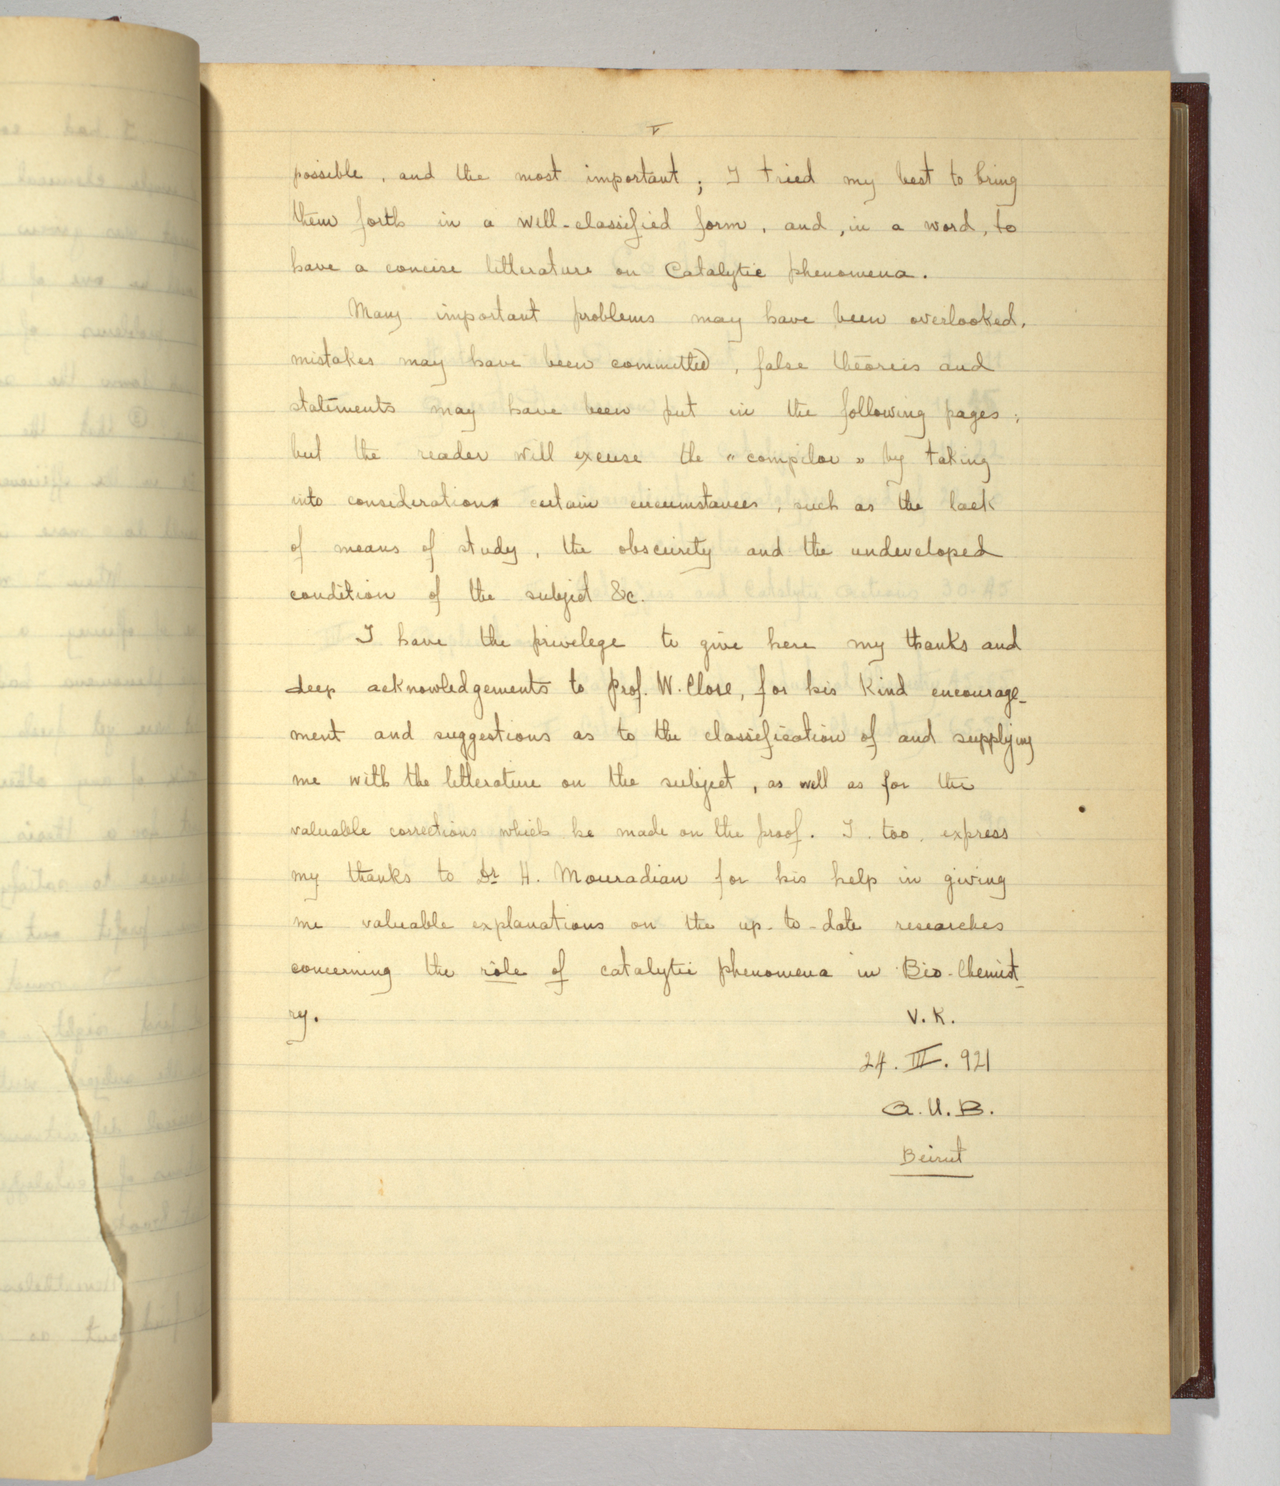 V
possible, and the most important; I tried my best to bring
them forth in a well-classified form, and, in a word, to
have a concise litterature on Catalytic phenomena.
Many important problems may have been overlooked,
mistakes may have been committed, false theories and
statements may have been put in the following pages;
but the reader will excuse the « compilor » by taking
into consideration certain circumstances, such as the lack
of means of study, the obscurity and the undeveloped
condition of the subject &c.
I have the privilege to give here my thanks and
deep acknowledgements to Prof. W. Close, for his Kind encourage-
ment and suggestions as to the classification of and supplying
me with the litterature on the subject, as well as for the
valuable corrections which he made on the proof. I, too, express
my thanks to Dr H. Mouradian for his help in giving
me valuable explanations on the up-to-date researches
concerning the rôle of catalytic phenomena in Bio-Chemist-
ry.
V. K.
24. III. 921
A.U.B.
Beirut